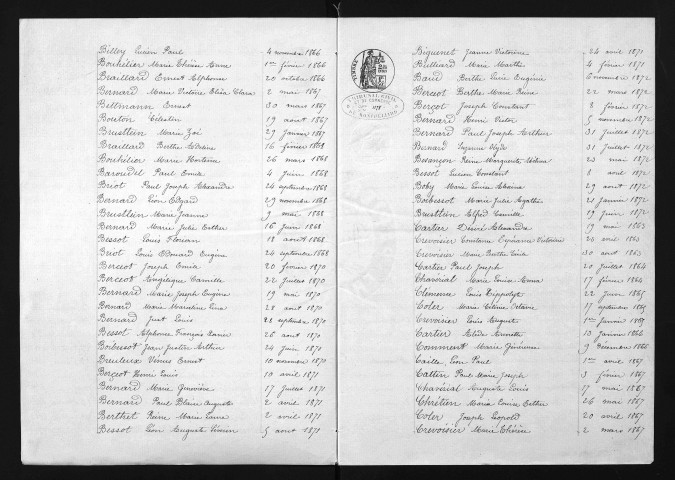 Billey Lucien Paul 4 novembre 1866
Bouhélier Marie Thérèse Anna 1er février 1866
Braillard Ernest Alphonse 20 octobre 1866
Bernard Marie Victoire Eliza Clara 2 mai 1867
Bellmann Ernest 30 mars 1867
Bourton Célestin 19 août 1867
Bruisttin Marie Zoé 29 janvier 1867
Braillard Berthe 16 février 1868
Bouhélier Marie Hortense 26 mars 1868
Baroudel Paul Emile 4 juin 1868
Briot Paul Joseph Alexandre 24 septembre 1868
Bernard Léon Edgard 29 novembre 1868
Bruisttein Marie Jeanne 9 mai 1868
Bernard Marie Julie Esther 16 juin 1868
Bessot Louis Florian 18 août 1868
Briot Louis Edouard Eugène 24 septembre 1868
Bercot Joseph Emile 20 février 1870
Berceot Camille 22 juillet 1870
Bernard Marie Joseph Eugène 19 mai 1870
Bernard Marie 28 août 1870
Bernard Just Louis 21 septembre 1870
Bessot Alphonse François Xavier 26 août 1870
Bobessot Jean Justin Arthur 24 juin 1870
Breuleux Vénus Ernest 10 novembre 1870
Berçot Henri Louis 10 avril 1871
Bernard Marie Geneviève 17 juillet 1871
Bernard Paul Blaise Auguste 2 avril 1871
Berthet Reine Marie Laure 2 avril 1871
Bessot Léon Auguste 5 août 1871
TIMBRE
TRIBUNAL CIVIL
DE MONTBÉLIARD
Béguenet Jeanne Victorine 24 avril 1871
Bulliard Marie Marthe 4 février 1871
Baud Berthe Lucie Eugénie 6 novembre 1872
Bercot Berthe Marie Reine 22 mars 1872
Berçot Joseph Constant 8 février 1872
Bernard Henri Victor 5 novembre 1872
Bernard Paul Joseph Arthur 31 juillet 1872
Bernard Suzanne 31 juillet 1872
Besançon Reine Marguerite 23 mai 1872
Bessot Lucien Constant 8 avril 1872
Boby Marie Louise 29 août 1872
Bobessot Marie Julie Agathe 21 janvier 1872
Bruisttein Alfred Camille 19 juin 1872
Cartier Désiré Alexandre 19 mai 1863
Crevoisier Constance Victorine 22 avril 1863
Crevoisier Marie Berthe Lucie 30 août 1863
Cartier Paul Joseph 20 juillet 1864
Chavérial Marie Louise Anna 17 février 1864
Clémence Louis Hippolyte 22 juin 1865
Coler Marie Céline Octavie 17 septembre 1865
Crevoisier Louis Auguste 1er janvier 1865
Cartier Annette 13 janvier 1866
Comment Marie Généreuse 9 décembre 1866
Caille Léon Paul 1er avril 1867
Cattin Paul Marie Joseph 3 février 1867
Chavérial Auguste Louis 17 mai 1867
Chrétien Maria Louise Esther 26 mai 1867
Coler Joseph Léopold 20 avril 1867
Crevoisier Marie Thérèse 2 mars 1867